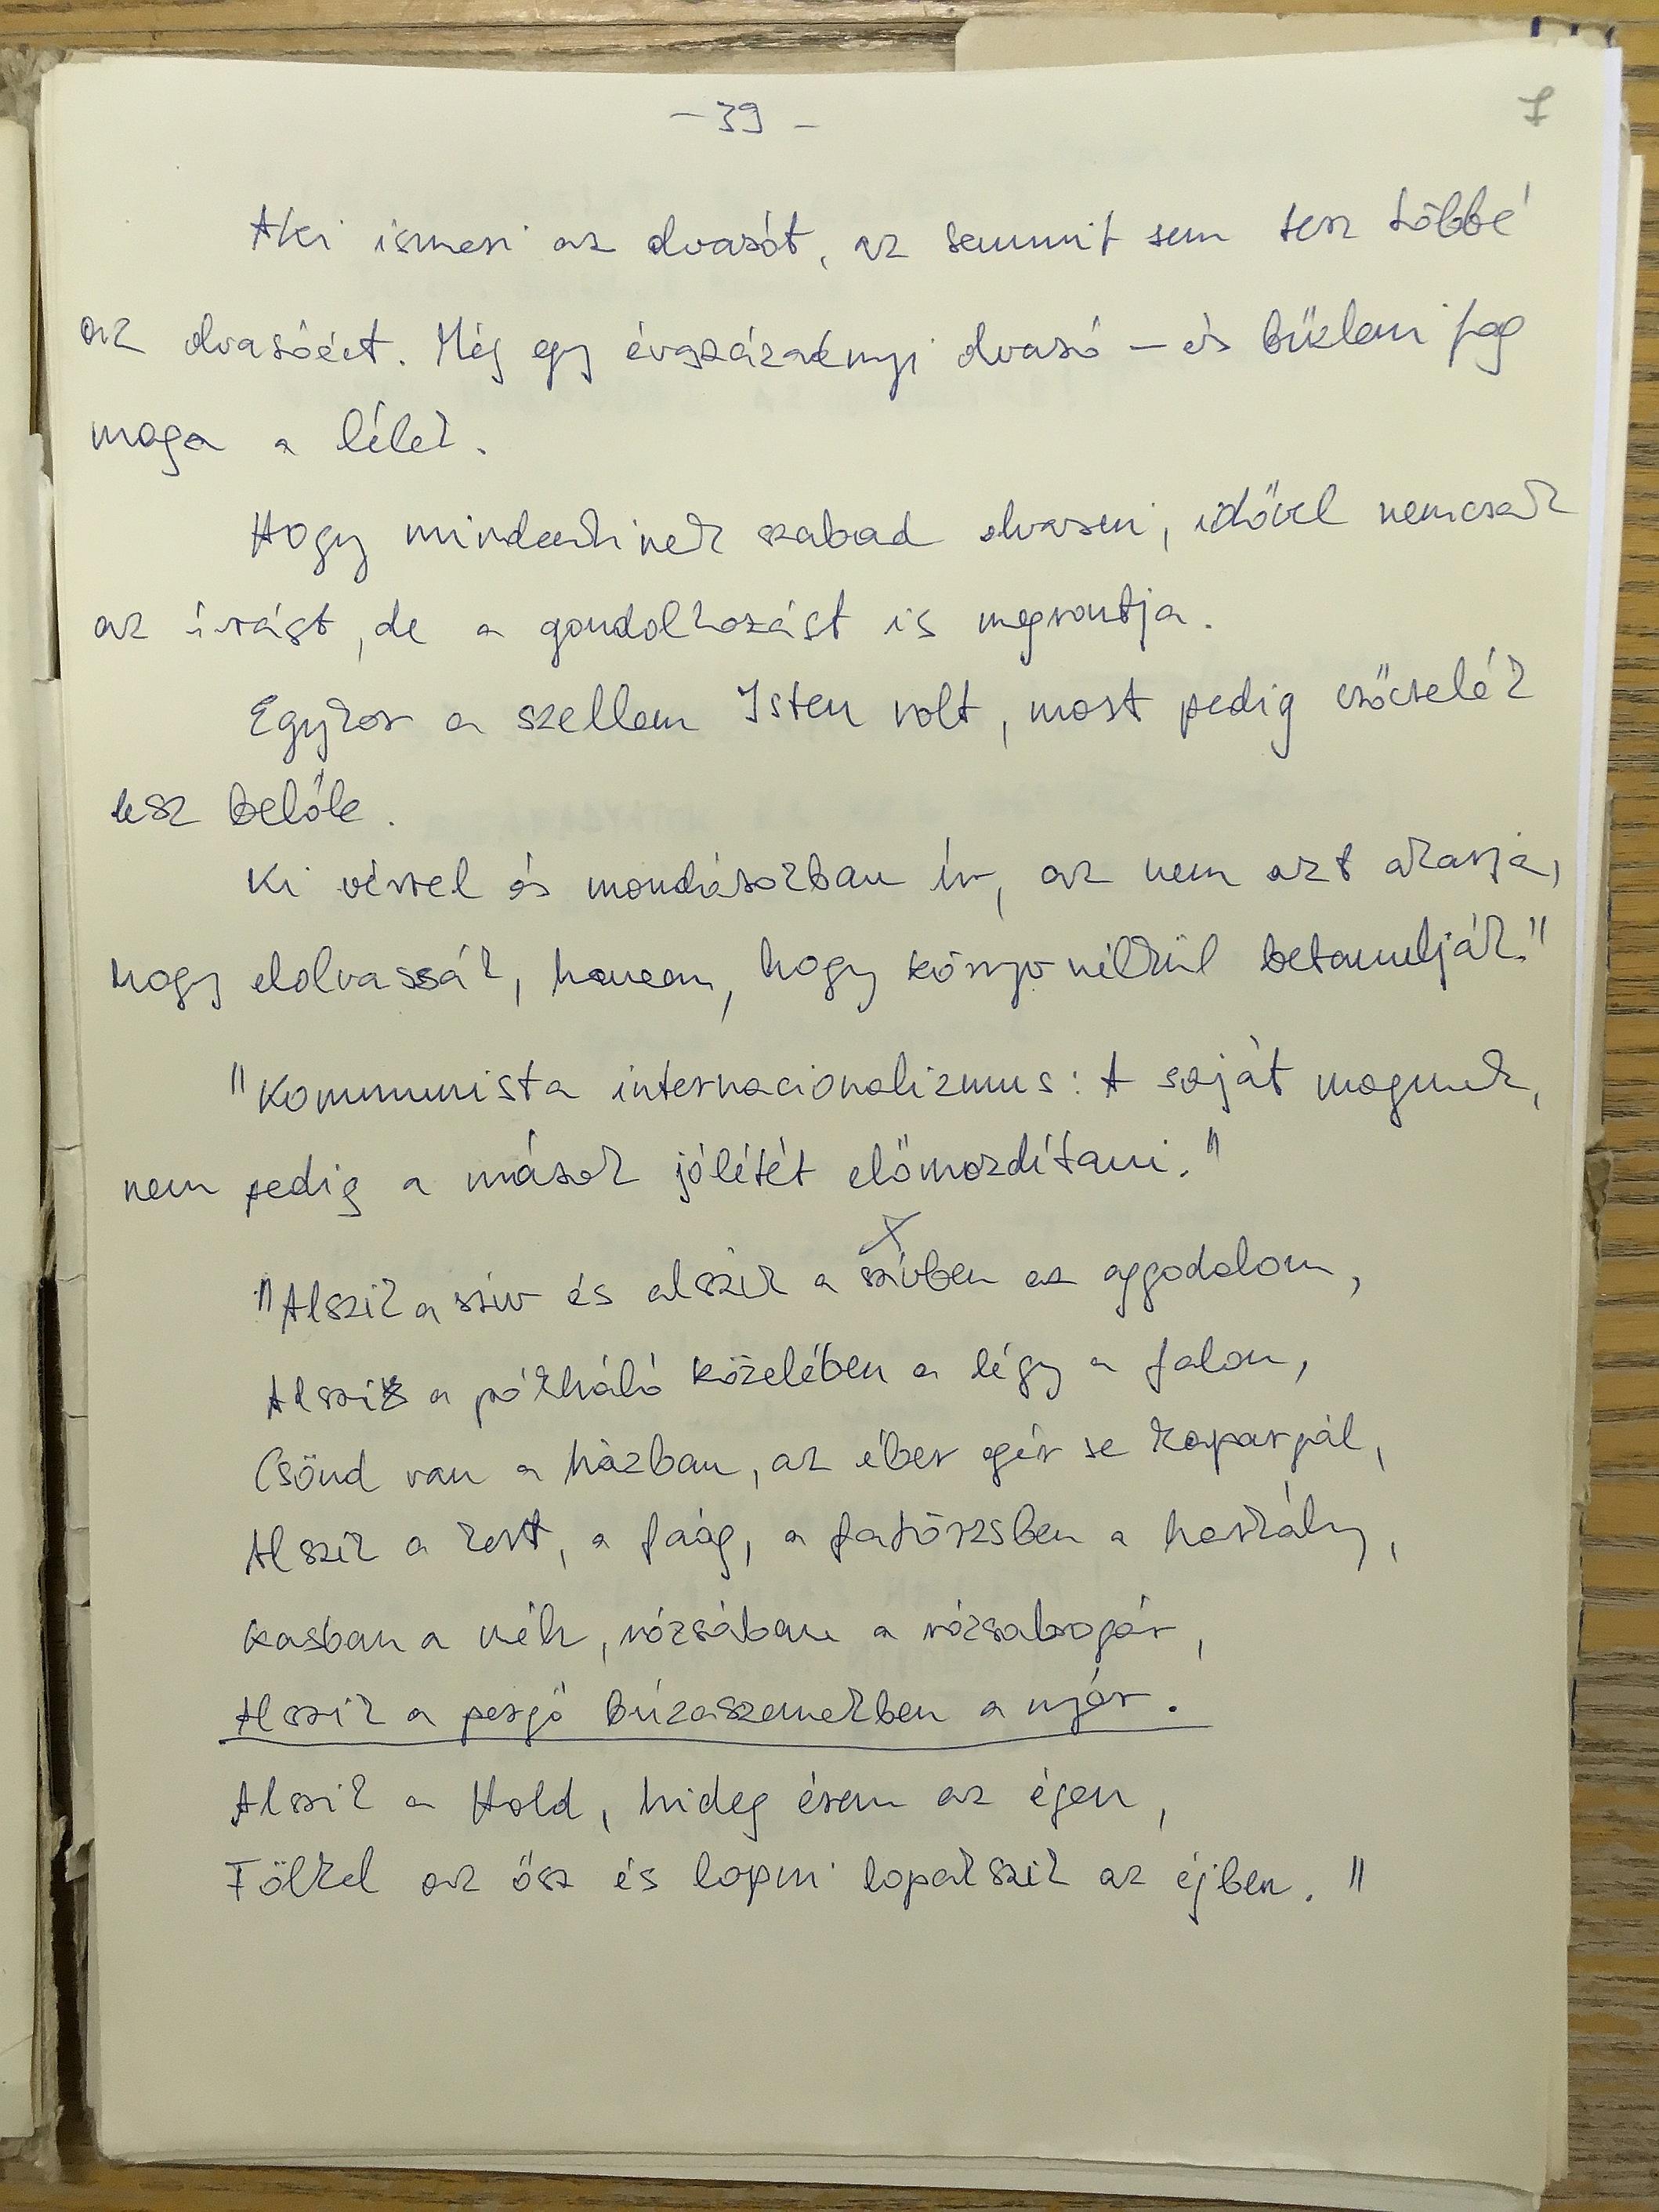 – 39 –
I
Aki ismeri az olvasót, az semmit sem tesz többé
az olvasóért. Még egy évszázadnyi olvasó – és bűzleni fog
maga a lélek.
Hogy mindenkinek szabad olvasni, idővel nemcsak
az írást, de a gondolkozást is megrontja.
Egykor a szellem Isten volt, most pedig csőcselék
lesz belőle.
Ki vérrel és mondásokban ír, az nem azt akarja,
hogy elolvassák, hanem, hogy könyv nélkül betanulják."
"Kommunista internacionalizmus: A saját magunk,
nem pedig a mások jólétét előmozdítani."
"Alszik a szív és alszik a szívben az aggodalom,
Alszik a pókháló közelében a légy a falon,
Csönd van a házban, az éber egér se kapargál,
Alszik a kert, a faág, a fatörzsben a harkály,
Kasban a méh, rózsában a rózsabogár,
Alszik a pergő búzaszemekben a nyár.
Alszik a Hold, hideg érem az égen,
Fölkel az ősz és lopni lopakszik az éjben."